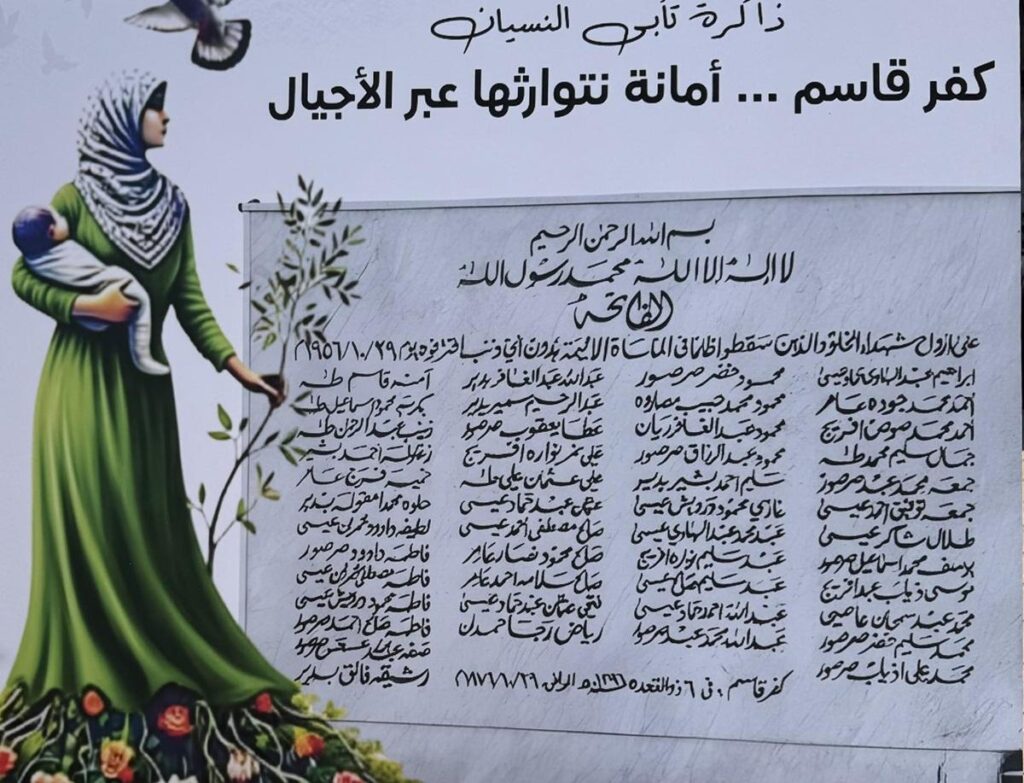 ذاكرة تأبى النسيان
كفر قاسم ... أمانة نتوارثها عبر الأجيال
بسم الله الرحمن الرحيم
لا إله إلا الله محمد رسول الله
الفاتحة
على ارواح شهداء الخلود الذين سقطوا ظلما في المأساة الاليمة بدون أي ذنب اقترفوه يوم ١٩٥٦/١٠/٢٩م
ابراهيم عبد الهادي عيسى
احمد محمد جوده عامر
احمد محمد افريج
جمال سليم محمد طه
جمعه محمد عبد صرصور
جمعه توفيق احمد عيسى
طلال شاكر عيسى
يوسف محمد اسماعيل صرصور
موسى ذياب عبد افريج
محمد عبد سمحان عاصي
محمد سليم خضر صرصور
محمد علي اذياب صرصور
محمود خضر صرصور
محمود محمد حبيب مصاروه
محمود عبد الغافر ريان
محمود عبد الرزاق صرصور
سليم احمد بشير بدير
غازي محمود درويش عيسى
عبد محمد عبد الهادي عيسى
عبد سليم نواره افريج
عبد سليم صالح عيسى
عبد الله احمد حماد عيسى
عبد الله محمد عبد صرصور
عبد الله عبد الغافر بدير
عبد الرحيم سمير بدير
عطا يعقوب صرصور
علي نمر نواره افريج
علي عثمان علي طه
عثمان عبد حماد عيسى
صالح مصطفى احمد عيسى
صالح محمود نصار عامر
صالح سلامه احمد عامر
فتحي عثمان عبد حماد عيسى
رياض رجا حمدان
آمنه قاسم طه
بكريه محمود اسماعيل طه
زينب عبد الرحمن طه
زغلوله احمد بشير
خميسه فرج عامر
حلوه محمد بدير
لطيفه داوود عيسى
فاطمه داوود صرصور
فاطمه مصطفى عيسى
فاطمه محمود درويش عيسى
فاطمه صالح احمد صرصور
صفيه صرصور
رشيقه فائق بدير
كفر قاسم : في ٦ ذو القعده ١٣٩٦ه